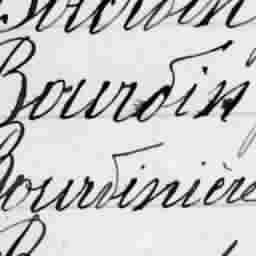 Bourdin
Bourdin
Bourdinière